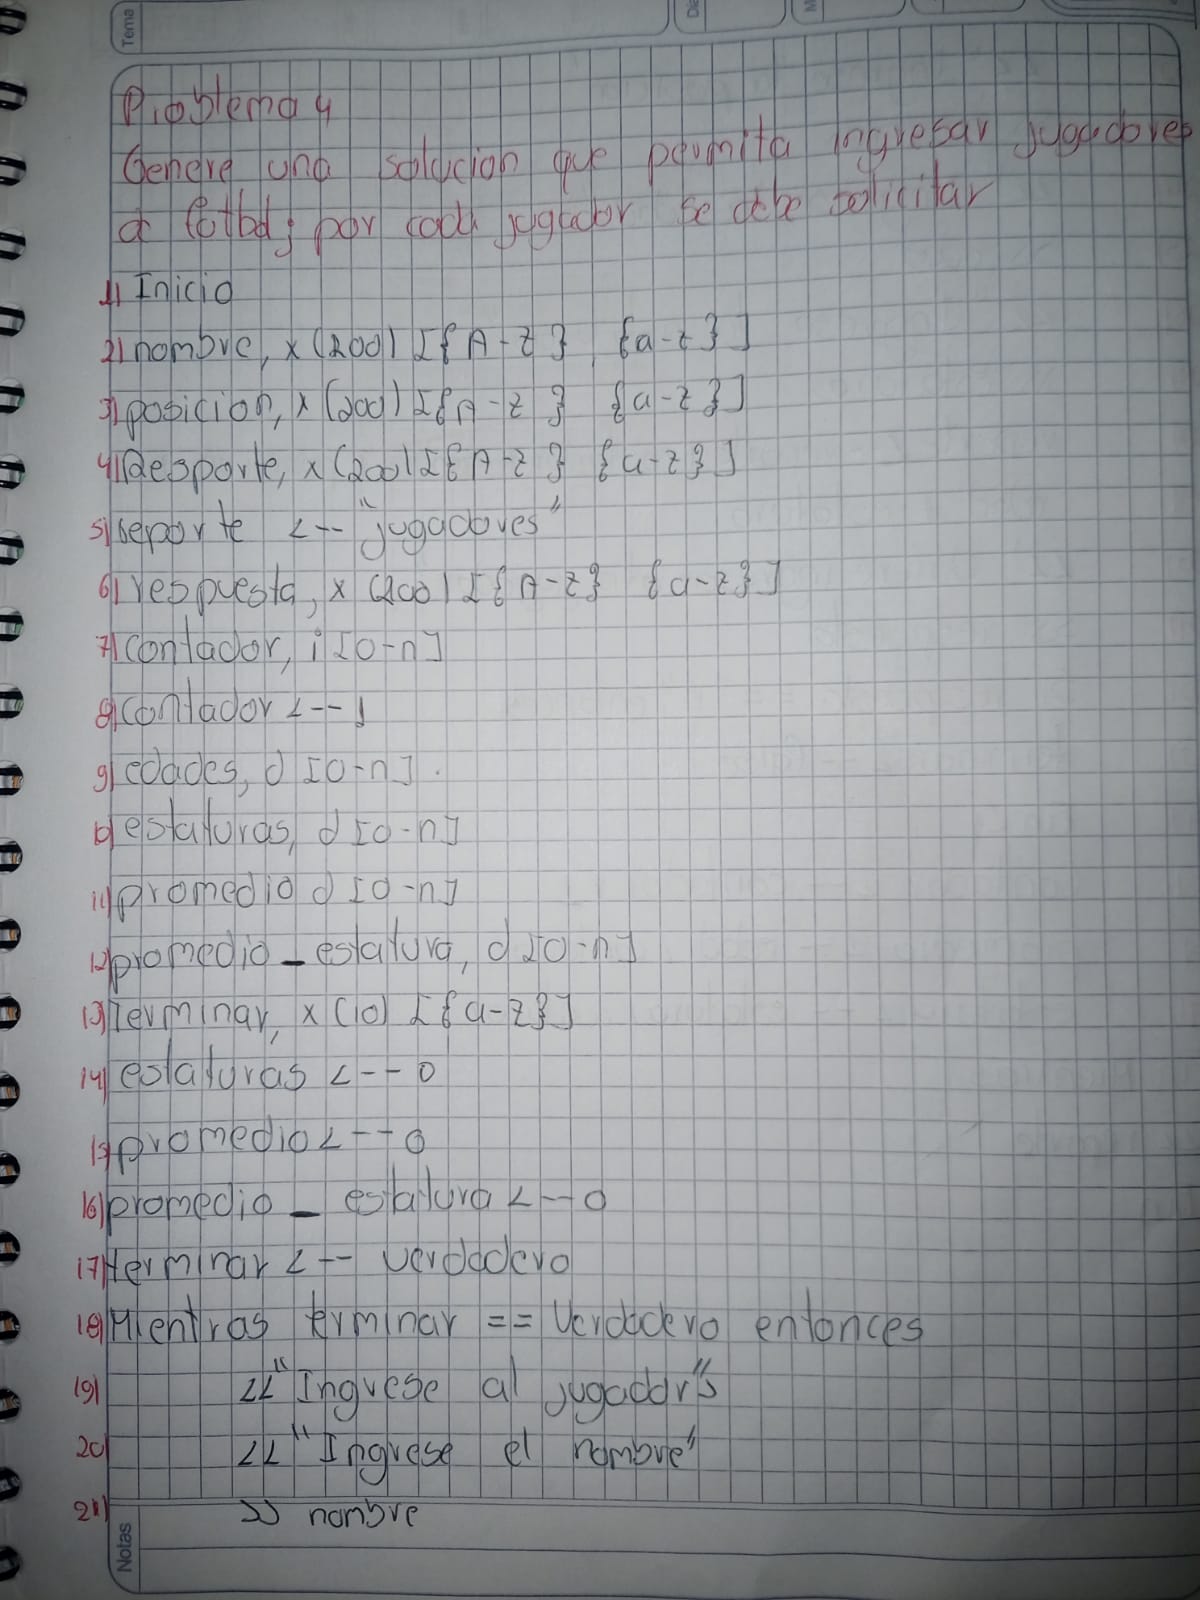 Tema
Problema 4
Genere una solucion que permita ingresar jugadores
a fotbol; por cada jugador se debe solicitar
1) Inicio
2) nombre, x (200) [{A-z} {a-z}]
3) posicion, x (200) [{A-z} {a-z}]
4) Desporte, x (200) [{A-z} {a-z}]
5) deporte <-- "jugadores"
6) respuesta, x (200) [{A-z} {a-z}]
7) contador, i [0-n]
8) contador <-- 1
9) edades, d [0-n].
10) estaturas, d [0-n]
11) promedio d [0-n]
12) promedio_estatura, d [0-n]
13) Terminar, x (10) [{a-z}]
14) estaturas <-- 0
15) promedio <-- 0
16) promedio_estatura <-- 0
17) terminar <-- verdadero
18) Mientras terminar == Verdadero entonces
19) << "Ingrese al jugador"s
20) << "Ingrese el nombre"
21) >> nombre
Notas